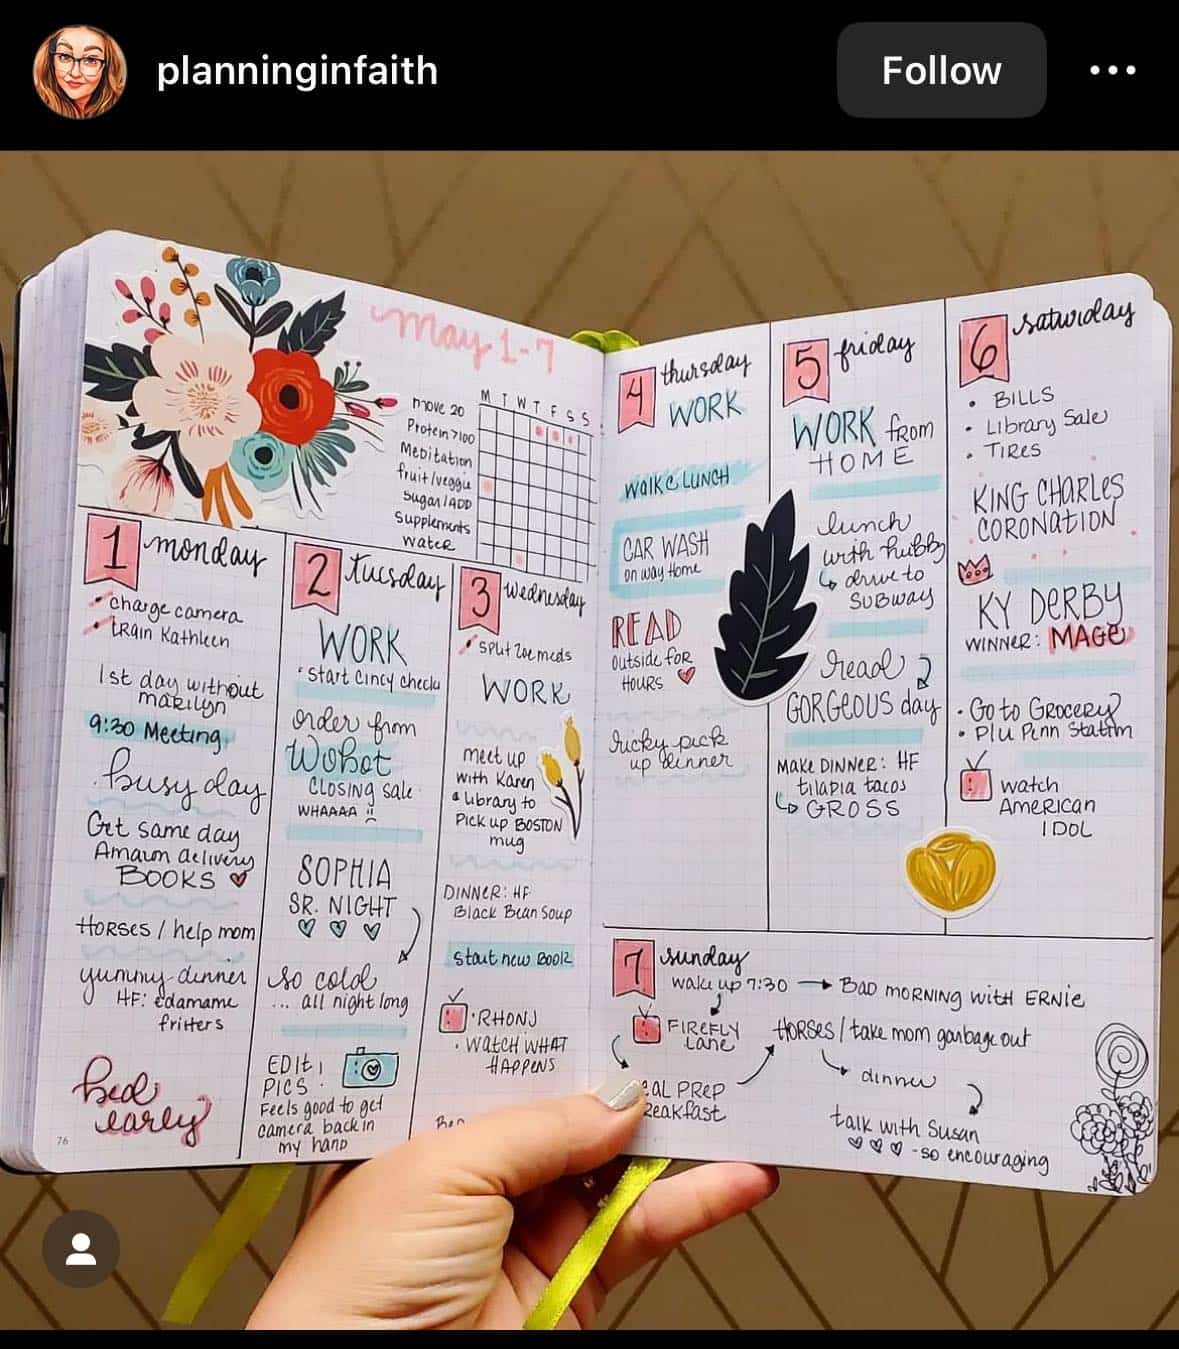 planninginfaith
Follow
May 1-7
M T W T F S S
move 20
Protein >100
Meditation
fruit/veggie
Sugar/ADD
Supplements
Water
1 monday
charge camera
train Kathleen
1st day without
marilyn
9:30 Meeting
busy day
Get same day
Amazon delivery
BOOKS
HORSES / help mom
yummy dinner
HF: edamame
fritters
bed
early
76
2 tuesday
WORK
start cincy check
order from
Wobot
CLOSING sale
WHAAAA
SOPHIA
SR. NIGHT
so cold
... all night long
EDIT
PICS
Feels good to get
camera back in
my hand
3 wednesday
split zoe meds
WORK
meet up
with Karen
& library to
Pick up BOSTON
mug
DINNER: HF
Black Bean Soup
start new BOOK
RHONJ
• WATCH WHAT
HAPPENS
4 thursday
WORK
walk @ LUNCH
CAR WASH
on way Home
READ
outside for
HOURS
pick
up dinner
5 friday
WORK from
HOME
lunch
with hubby
↳ drive to
SUBWAY
read
GORGEOUS day
MAKE DINNER: HF
tilapia tacos
↳ GROSS
6 saturday
• BILLS
• Library Sale
• TIRES
KING CHARLES
CORONATION
KY DERBY
WINNER: MAGE
• Go to Grocery
• Plu Penn Station
watch
AMERICAN
IDOL
7 sunday
wake up 7:30 → BAD MORNING WITH ERNIE
FIREFLY
Lane
HORSES / take mom garbage out
EAL PREP
REAKFAST
dinner
talk with Susan
- so encouraging